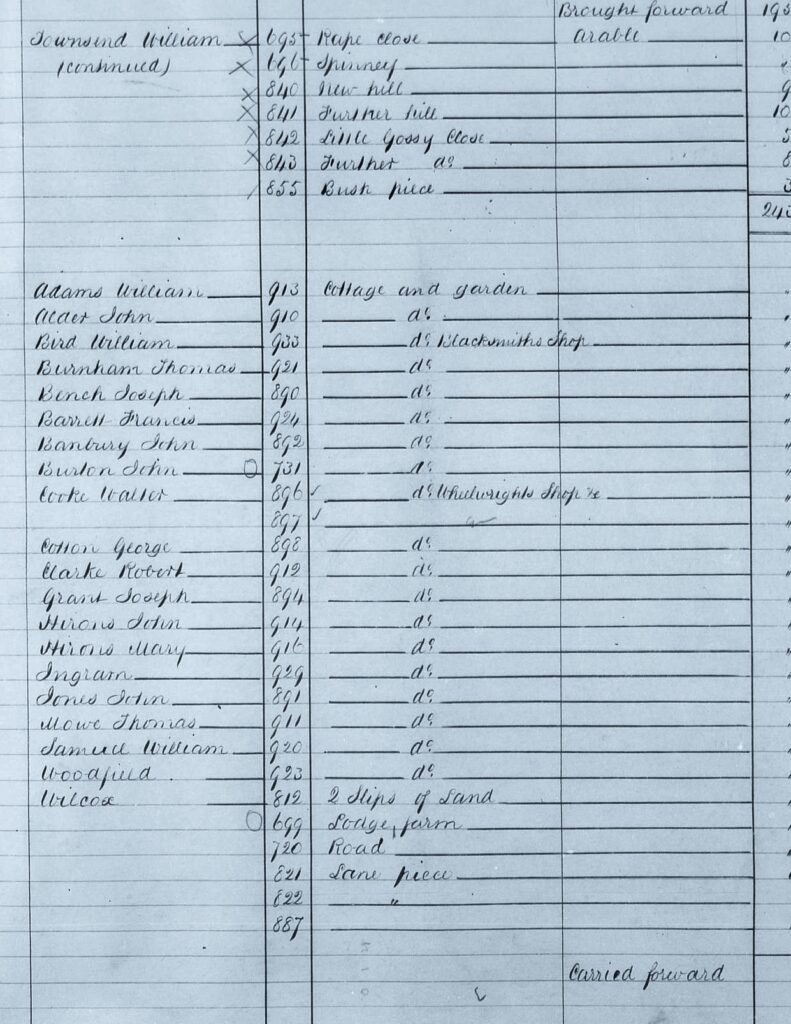 Brought forward 195
Townsend William × 695 Rape Close arable 10
(continued) × 696 Spinney "
× 840 New hill 9
× 841 Further hill 10
× 842 Little Gossy Close 5
× 843 Further do 8
/ 855 Bush piece 3
243
Adams William 913 Cottage and garden "
Alder John 910 do "
Bird William 933 do Blacksmiths Shop "
Burnham Thomas 921 do "
Bench Joseph 890 do "
Barrett Francis 924 do "
Banbury John 892 do "
Burton John O 731 do "
Cooke Walter 896 ✓ do Wheelwrights Shop &c "
897 ✓ "
Cotton George 898 do "
Clarke Robert 912 do "
Grant Joseph 894 do "
Hirons John 914 do "
Hirons Mary 916 do "
Ingram 929 do "
Jones John 891 do "
Mowe Thomas 911 do "
Samuell William 920 do "
Woodfield 923 do "
Wilcox 812 2 Slips of Land
O 699 Lodge, farm
720 Road
821 Lane piece
822 "
887
Carried forward